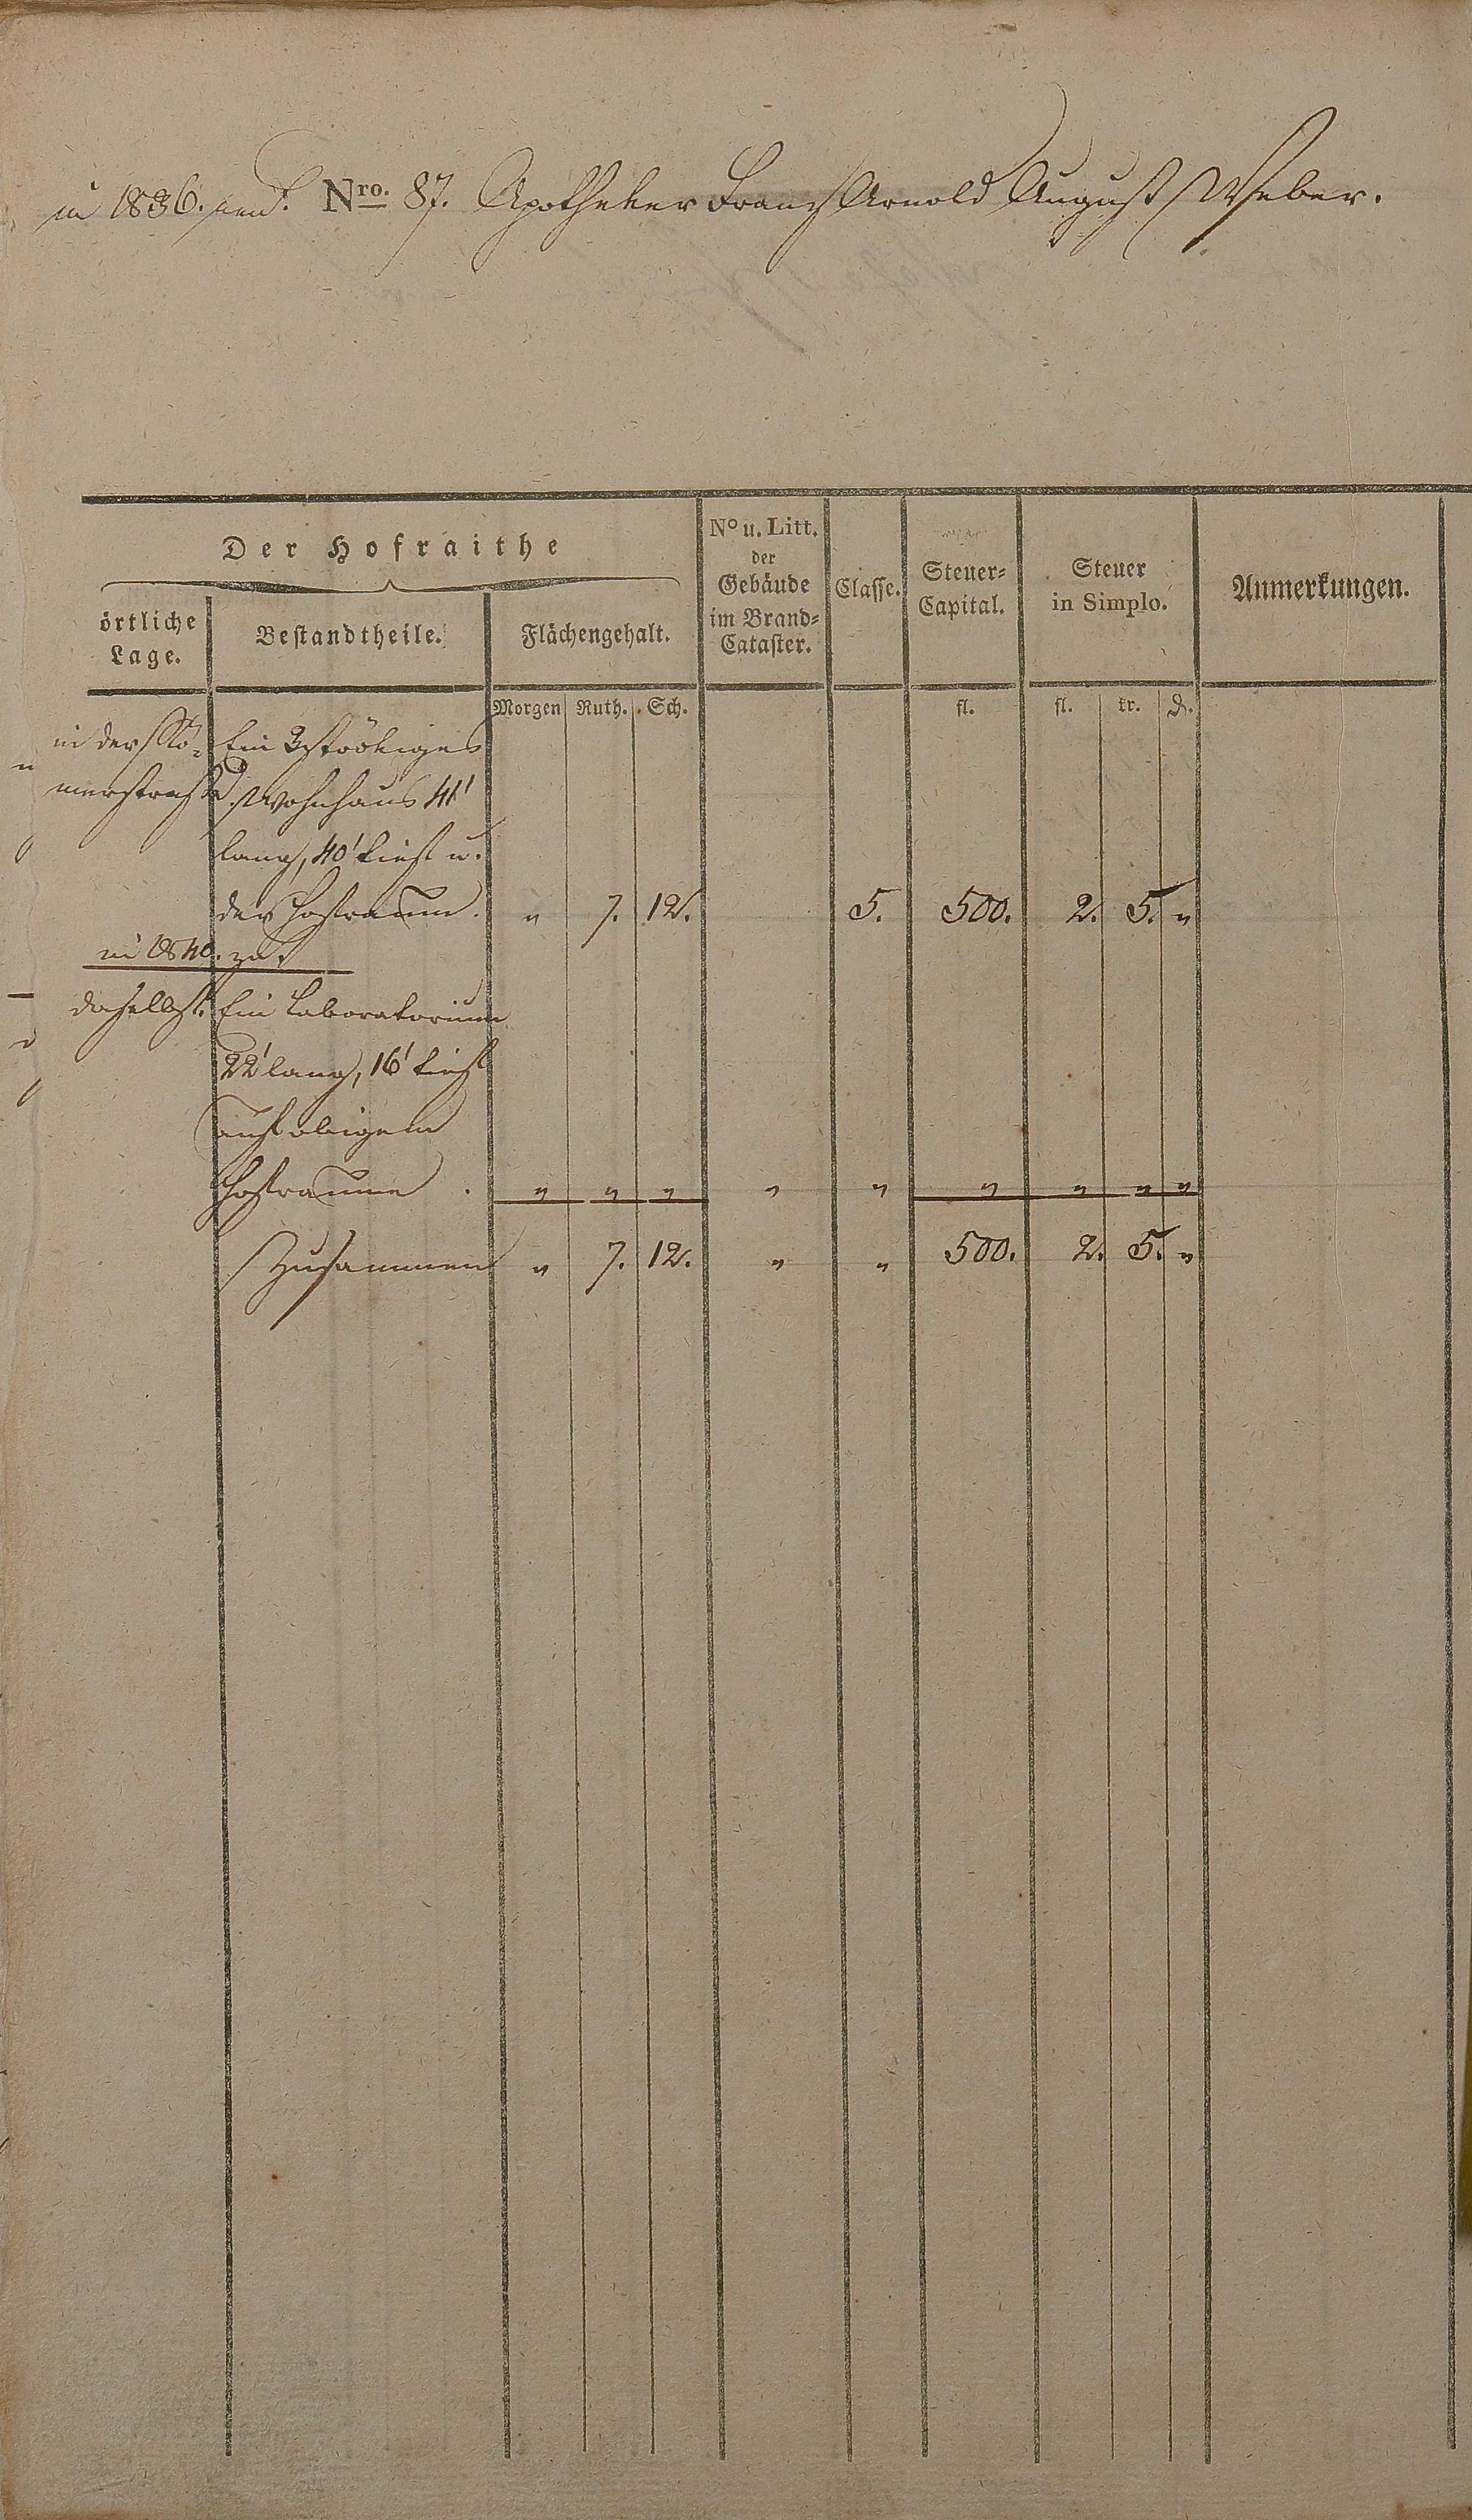 in 1836. Nro. 87. Apotheker Franz Arnold August Weber.
Der Hofraithe
örtliche Lage.
Bestandtheile.
Flächengehalt.
No u. Litt. der Gebäude im Brand-Cataster.
Classe.
Steuer-Capital.
Steuer in Simplo.
Anmerkungen.
Morgen Ruth. Sch. fl. fl. kr. d.
in der Rö- Ein 3stöckiges
merstraße Wohnhaus 41'
lang, 40' tief u.
der Hofraum. " 7. 12. 5. 500. 2. 5. "
in 1840. zu.
daselbst. Ein Laboratorium
22' lang, 16' tief
auf obigem
Hofraume . " " " " " " " " "
Zusammen " 7. 12. " " 500. 2. 5. "